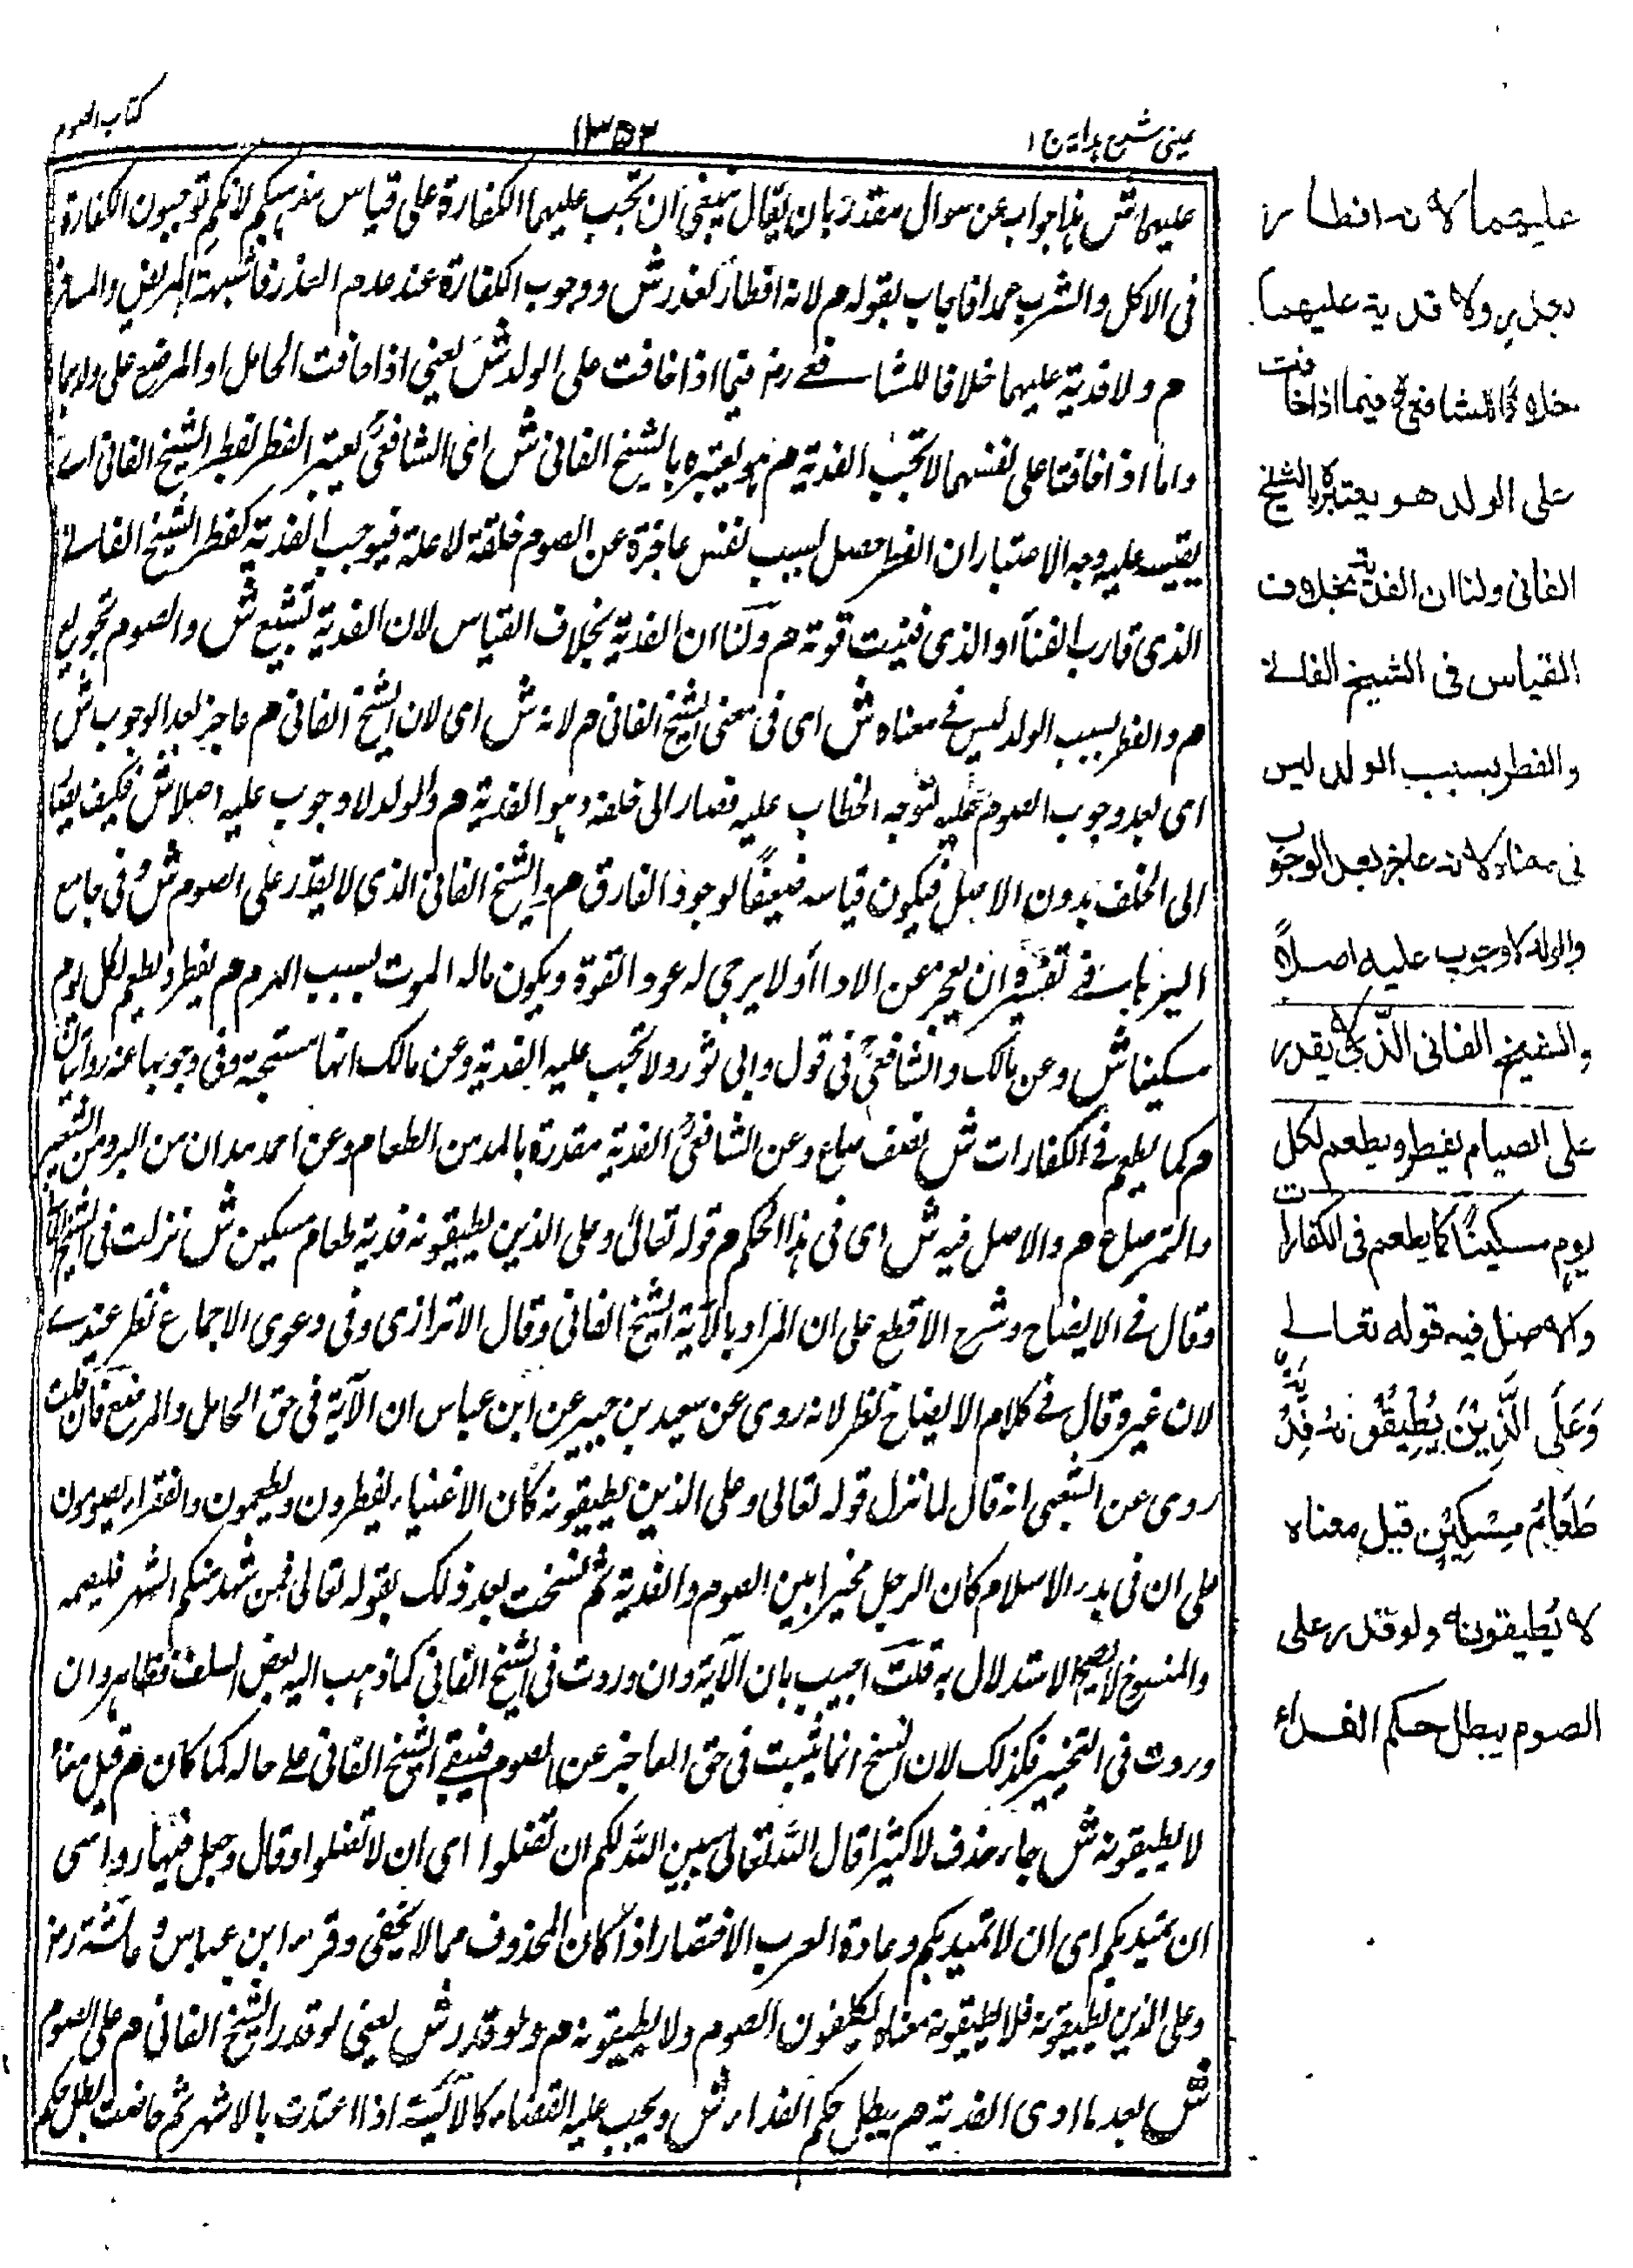 عینی شرح ہدایہ ج ۱
۱۳۵۲
کتاب الصوم
عليهما ش هذا جواب عن سوال مقدر بان يقال ينبغي ان تجب عليهما الكفارة على قياس مذهبكم لانكم توجبون الكفارة
في الاكل والشرب عمدا فاجاب بقوله م لانه افطار بعذر ش ووجوب الكفارة عند عدم العذر فاشبهت المريض والمسافر
م ولا فدية عليهما خلافا للشافعي رض فيما اذا خافت على الولد ش يعني اذا خافت الحامل او المرضع على ولدهما
واما اذا خافتا على نفسهما لا تجب الفدية م هو يعتبره بالشيخ الفاني ش اي الشافعي يعتبر الفطر بفطر الشيخ الفاني اي
يقيسه عليه وجه الاعتبار ان الفطر حصل بسبب نفس عاجزة عن الصوم خلقة لا علة فيوجب الفدية كفطر الشيخ الفاني
الذي قارب الفناء او الذي فنيت قوته م ولنا ان الفدية بخلاف القياس لان الفدية تشبيع ش والصوم تجويع
م والفطر بسبب الولد ليس في معناه ش اي في معنى الشيخ الفاني م لانه ش اي لان الشيخ الفاني م عاجز بعد الوجوب ش
اي بعد وجوب الصوم عليه لتوجه الخطاب عليه فصار الى خلفه وهو الفدية م والولد لا وجوب عليه اصلا ش فكيف يقا
الى الخلف بدون الاصل فيكون قياسه ضعيفا لوجود الفارق م والشيخ الفاني الذي لا يقدر على الصوم ش وفي جامع
البزهاني في تفسيره ان يعجز عن الاداء ولا يرجى له عود القوة ويكون ماله الموت بسبب الهرم م يفطر ويطعم لكل يوم
مسكينا ش وعن مالك والشافعي في قول وابي ثور ولا تجب عليه الفدية وعن مالك انها مستحبة وفي وجوبها عنه روايتان
م كما يطعم في الكفارات ش نصف صاع وعن الشافعي الفدية مقدرة بالمد من الطعام وعن احمد مدان من البر ومن الشعير
والتمر صاع م والاصل فيه ش اي في هذا الحكم م قوله تعالى وعلى الذين يطيقونه فدية طعام مسكين ش نزلت في الشيخ الفاني
وقال في الايضاح وشرح الاقطع على ان المراد بالآية الشيخ الفاني وقال الاترازي وفي دعوى الاجماع نظر عندي
لان غيره قال في كلام الايضاح نظر لانه روى عن سعيد بن جبير عن ابن عباس ان الآية في حق الحامل والمرضع فان قلت
روى عن الشعبي انه قال لما نزل قوله تعالى وعلى الذين يطيقونه كان الاغنياء يفطرون ويطعمون والفقراء يصومون
على ان في بدء الاسلام كان الرجل مخيرا بين الصوم والفدية ثم نسخت بعد ذلك بقوله تعالى فمن شهد منكم الشهر فليصمه
والمنسوخ لا يصح الاستدلال به قلت اجيب بان الآية وان وردت في الشيخ الفاني كما ذهب اليه بعض السلف فظاهر وان
وردت في التخيير فكذلك لان النسخ انما يثبت في حق العاجز عن الصوم فيبقى الشيخ الفاني على حاله كما كان م قيل معناه
لا يطيقونه ش جاء حذف لا كثيرا قال الله تعالى يبين الله لكم ان تضلوا اي ان لا تضلوا وقال وجعل فيها رواسي
ان تميد بكم اي ان لا تميد بكم وعادة العرب الاختصار اذا كان المحذوف مما لا يخفى وقرء ابن عباس وعائشة رض
وعلى الذين يطيقونه فلا يطيقونه معناه يكلفون الصوم ولا يطيقونه م ولو قدر ش يعني لو قدر الشيخ الفاني م على الصوم
ش بعد ما ادى الفدية م يبطل حكم الفداء ش ويجب عليه القضاء كالآيسة اذا اعتدت بالاشهر ثم حاضت بطل حكم
عليهما لانه افطار
بعذر ولا فدية عليهما
خلافا للشافعي فيما اذا خافت
على الولد هو يعتبره بالشيخ
الفاني ولنا ان الفدية بخلاف
القياس في الشيخ الفاني
والفطر بسبب الولد ليس
في معناه لانه عاجز بعد الوجوب
والولد لا وجوب عليه اصلاً
والشيخ الفاني الذي لا يقدر
على الصيام يفطر ويطعم لكل
يوم مسكيناً كما يطعم في الكفارات
والاصل فيه قوله تعالى
وَعَلَى الَّذِيْنَ يُطِيْقُوْنَهٗ فِدْيَةٌ
طَعَامُ مِسْكِيْنٍ قيل معناه
لا يُطيقونه ولو قدر على
الصوم يبطل حكم الفداء